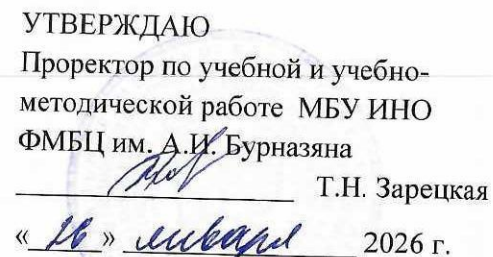 УТВЕРЖДАЮ
Проректор по учебной и учебно-
методической работе МБУ ИНО
ФМБЦ им. А.И. Бурназяна
Т.Н. Зарецкая
«26» января 2026 г.